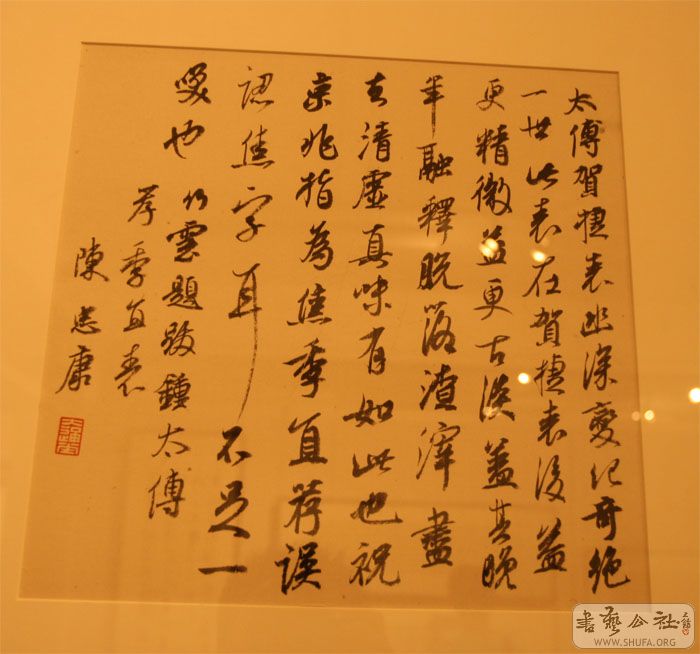 太傅賀捷表幽深變化奇絶
一世此表在賀捷表後益
更精微益更古淡蓋其晚
年融釋脱落渣滓盡
去清虛真味有如此也祝
京兆指為焦季直荐誤
認焦字耳不足一
噯也竹雲題跋鍾太傅
荐季直表
陳忠康
書藝公社
WWW.SHUFA.ORG